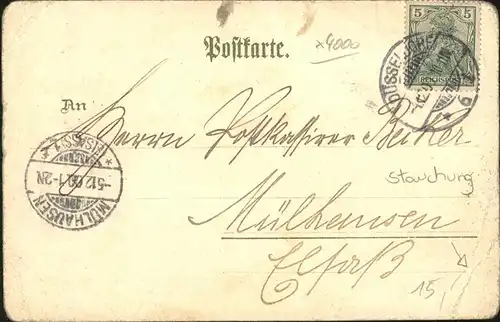 5 5
REICHSPOST
x4000
Postkarte.
DÜSSELDORF
An
Herrn Postkassirer Becker
MÜLHAUSEN
5.12.00.1-2N.
(ELSASS) 1
Stauchung
Mülhausen
Elsaß
15,-